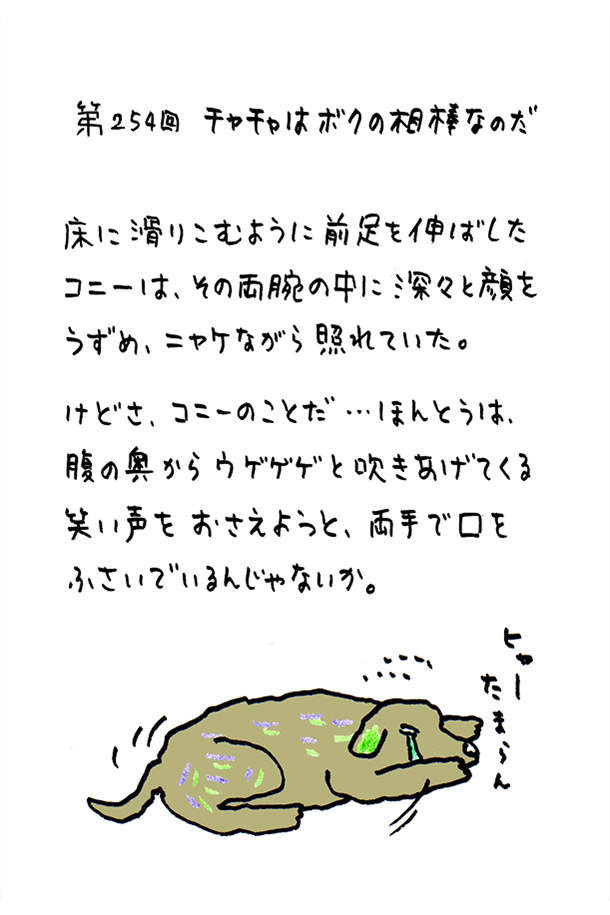 第254回 チャチャはボクの相棒なのだ
床に滑りこむように前足を伸ばした
コニーは、その両腕の中に深々と顔を
うずめ、ニヤケながら照れていた。
けどさ、コニーのことだ…ほんとうは、
腹の奥からウゲゲゲと吹きあげてくる
笑い声をおさえようと、両手で口を
ふさいでいるんじゃないか。
ヒャー
たまらん